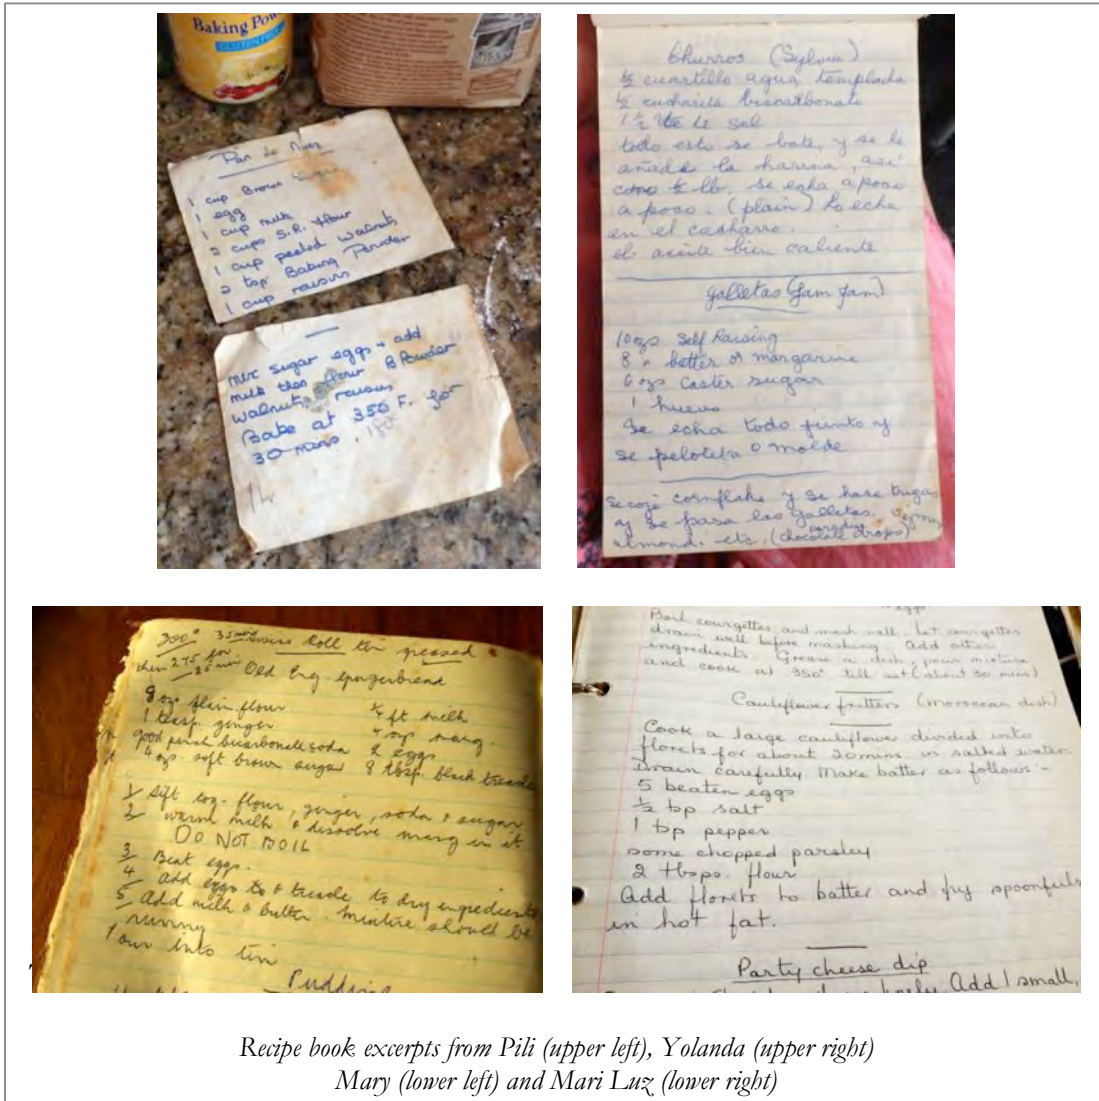 Baking Pow
GLUTEN FREE
Pan de Nuez
1 cup Brown Sugar
1 egg
1 cup milk
2 cups S.R. flour
1 cup peeled walnuts
2 tsp Baking Powder
1 cup raisins
mix sugar eggs + add
milk then flour B Powder
walnuts raisins
Bake at 350 F. for
30 mins.
Churros (Sylvia)
½ cuartillo agua templada
½ cucharita biscarbonato
1 ½ de sal
todo esto se bate, y se le
añade la harina, asi
como ½ lb. se echa a poco
a poco. (plain) Lo echa
en el cacharro.
el aceite bien caliente
galletas (Jam Jam)
10 ozs Self Raising
8 " better or margarine
6 ozs caster sugar
1 huevo
Se echa todo junto y
se pelotita o molde
se coje cornflake y se hase trigas
y se pasa las galletas.
almond. etc. (chocolate drops)
300° 35 mins Swiss Roll tin greased
then 275 for
25 min
Old Eng. gingerbread
8 ozs plain flour
1 teasp. ginger
good pinch bicarbonate soda
4 ozs. soft brown sugar
¼ pt milk
4 ozs marg.
2 eggs
8 tbsp. black treacle
1/ Sift tog. flour, ginger, soda & sugar
2/ warm milk & dissolve marg in it
DO NOT BOIL
3/ Beat eggs.
4/ Add eggs to & treacle to dry ingredients
5/ Add milk & butter. Mixture should be
running
Pour into tin
Pudding
eggs
Boil courgettes and mash well. Let courgettes
drain well before mashing. Add other
ingredients. Grease a dish, pour mixture
and cook at 350° till set (about 30 mins)
Cauliflower fritters (Moroccan dish)
Cook a large cauliflower divided into
florets for about 20 mins in salted water.
Drain carefully. Make batter as follows:-
5 beaten eggs
½ tsp salt
1 tsp pepper
some chopped parsley
2 tbsps. flour
Add florets to batter and fry spoonfuls
in hot fat.
Party cheese dip
Add 1 small,
Recipe book excerpts from Pili (upper left), Yolanda (upper right)
Mary (lower left) and Mari Luz (lower right)